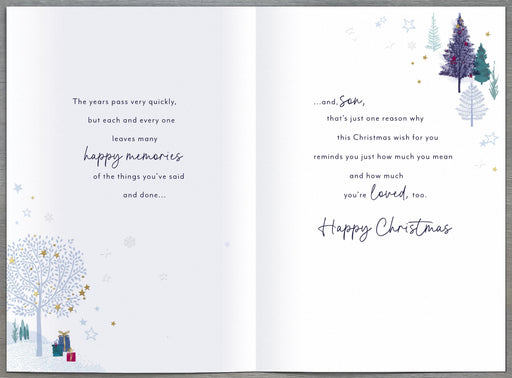 The years pass very quickly,
but each and every one
leaves many
happy memories
of the things you've said
and done...
...and, son,
that's just one reason why
this Christmas wish for you
reminds you just how much you mean
and how much
you're loved, too.
Happy Christmas